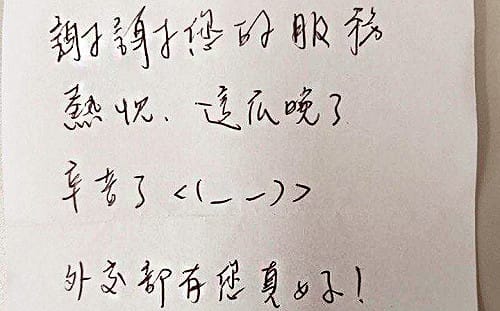 謝謝您的服務
熱忱、這瓜晚了
辛苦了<(_ _)>
外交部有您真好!